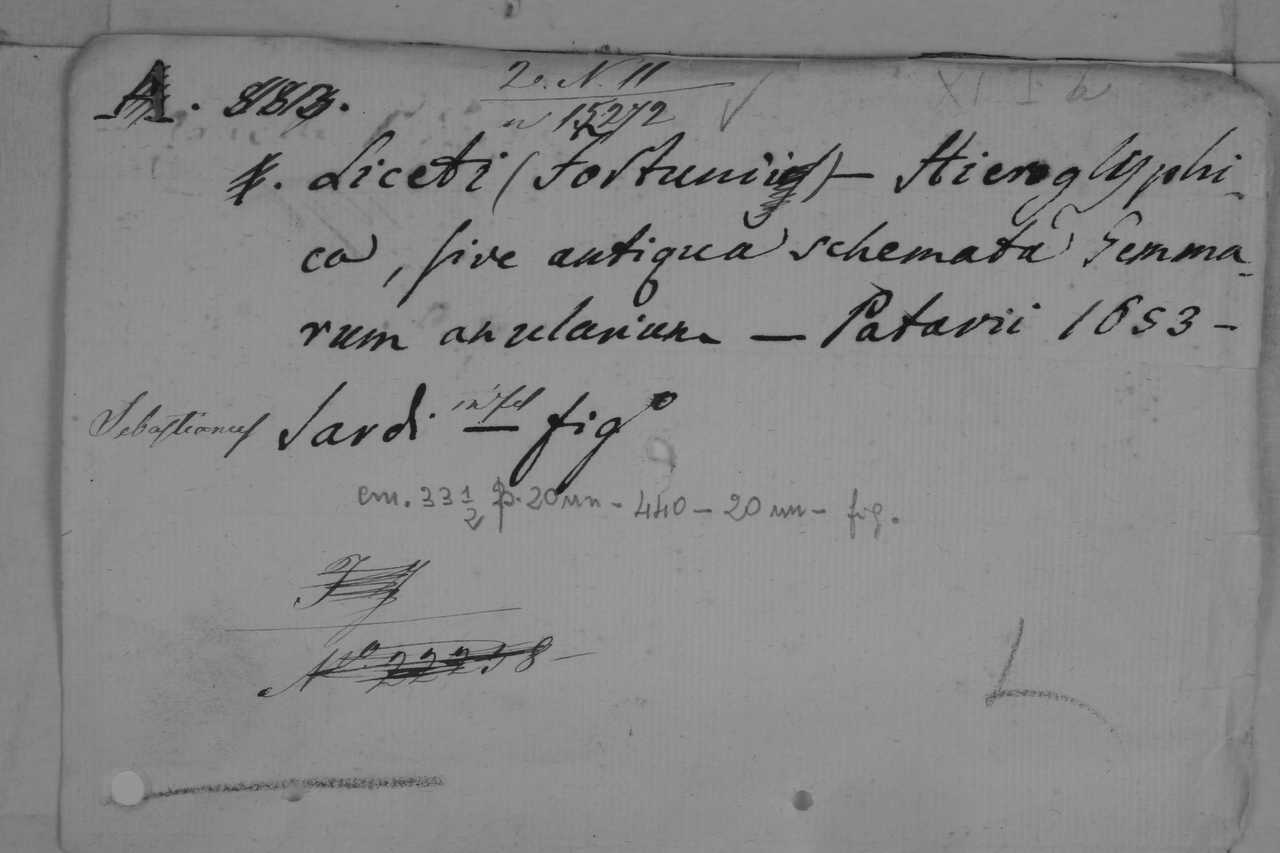 A. 883.
20. N. 11
15272
Liceti (Fortunii) — Hieroglyphi-
ca, sive antiqua schemata Gemma-
rum anularium — Patavii 1653 -
Sebastianus Sardi in fol — figº
cm. 33 1/2 p. 20 nn - 440 - 20 nn - fig.
Nº 22238
L